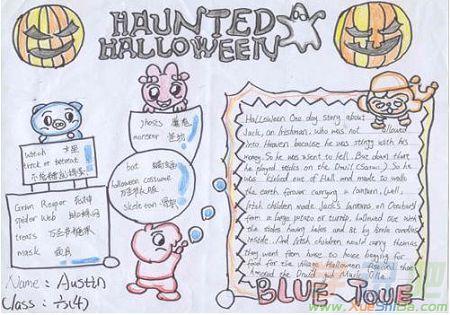 HAUNTED
HALLOWEEN
witch 女巫
trick or treat
不给糖就捣蛋
Grim Reaper 死神
spider web 蜘蛛网
treats 万圣节糖果
mask 面具
ghosts 魔鬼
monster 怪物
bat 蝙蝠
halloween costume
万圣节服
skeleton 骨骼
Halloween One day story about
Jack, an Irishman, who was not allowed
into Heaven because he was stingy with his
money. So he was sent to hell. But down that
he played tricks on the Devil (Satan). So he
kicked out of Hell and made to walk
the earth forever carrying a lantern. Well,
Irish children made Jack's lanterns on
from a large potato or turnip, hollowed out with
the sides having holes and lit by little candles
inside. And Irish children would carry themas
they went from house to house begging for
food for the village Halloween
honored the Druid god
BLUE TOUE
Name: Austin
Class: 六(4)
www.XueShiBa.com